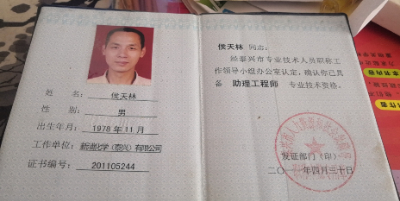 姓 名： 侯天林
性 别： 男
出生年月： 1978年11月
工作单位：
证书编号： 201105244
侯天林 同志：
经泰兴市专业技术人员职称工
作领导小组办公室认定，确认你已具
备 助理工程师 专业技术资格。
发证部门（印）
二〇一一年四月三十日